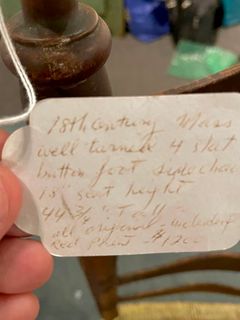 18th Century Mass
well turned 4 slat
button foot side chair
15" seat height
44 3/4" Tall
all original including
Red Paint $1200